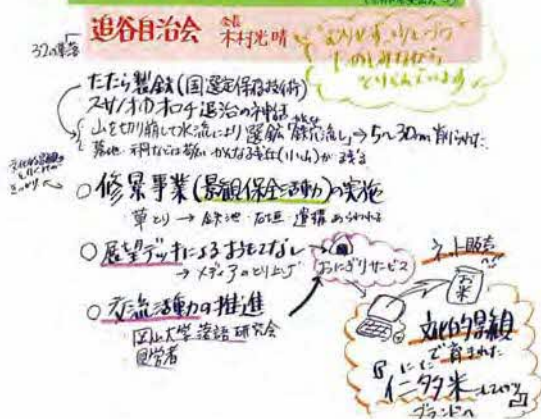 追谷自治会 会長 木村光晴
32の軍団
むりせず、1つずつ
たのしみながら
とりくんでいます
たたら製鉄(国選定保存技術)
スサノオのオロチ退治の神話
山を切り崩して水流により選鉱「鉄穴流し」→5〜30m削られた
墓地・祠などは
(小山)が残る
○修景事業(景観保全活動)の実施
草とり → 鉄池・石垣・遺構あらわれる
○展望デッキによるおもてなし→
→メディアのとり上げ
おにぎりサービス
○交流活動の推進
岡山大学落語研究会
見学者
ネット販売
お米
文化的景観
で育まれた
『仁多米』
にた
ブランドへ